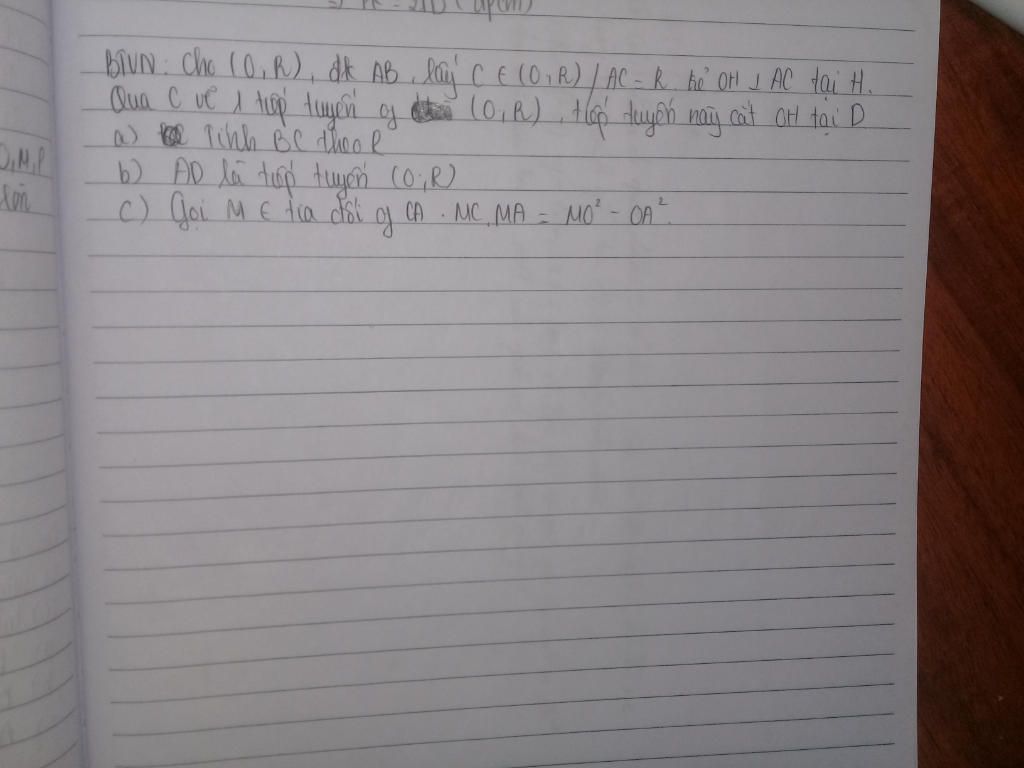 BTVN: Cho (O,R), đk AB, lấy C ∈ (O,R) / AC = R. kẻ OH ⊥ AC tại H.
Qua C vẽ 1 tiếp tuyến of (O,R), tiếp tuyến này cắt OH tại D
a) Tính BC theo R
b) AD là tiếp tuyến (O,R)
c) Gọi M ∈ tia đối of CA. MC.MA = MO² - OA².